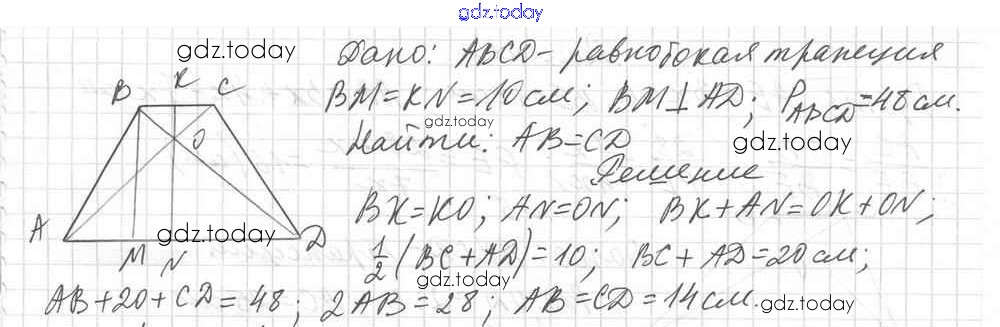 gdz.today
gdz.today
Дано: ABCD - равнобокая трапеция
B K C
BM = KN = 10 см; BM ⊥ AD; P ABCD = 48 см.
gdz.today
O
Найти: AB = CD
gdz.today
Решение
BK = KO; AN = ON; BK + AN = OK + ON;
A M N D
gdz.today
1/2 (BC + AD) = 10; BC + AD = 20 см;
gdz.today
AB + 20 + CD = 48; 2AB = 28; AB = CD = 14 см.
gdz.today